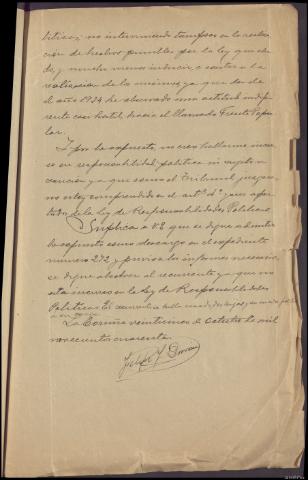 blica; no interviniendo tampoco en la reali-
zación de hechos punibles por la ley que cita-
da, y mucho menos inducir, o contar a la
realización de los mismos, ya que desde
el año 1934 he observado una actitud indife-
rente casi hostil hacia el llamado Frente Popu-
lar.
Y por lo expuesto, no creo hallarme incur-
so en responsabilidad política ni
y a que ese Tribunal juzgue
no estoy comprendido en el artº 4º y sus apar-
tados de la Ley de Responsabilidades Políticas
Suplica a V.E. que se digne admitir
lo expuesto como descargo en el expediente
número 272, y previos los informes necesarios,
se digne absolver al recurrente ya que no
esta incurso en la Ley de Responsabilidades
Políticas.
La Coruña veintiuno de octubre de mil
novecientos cuarenta.